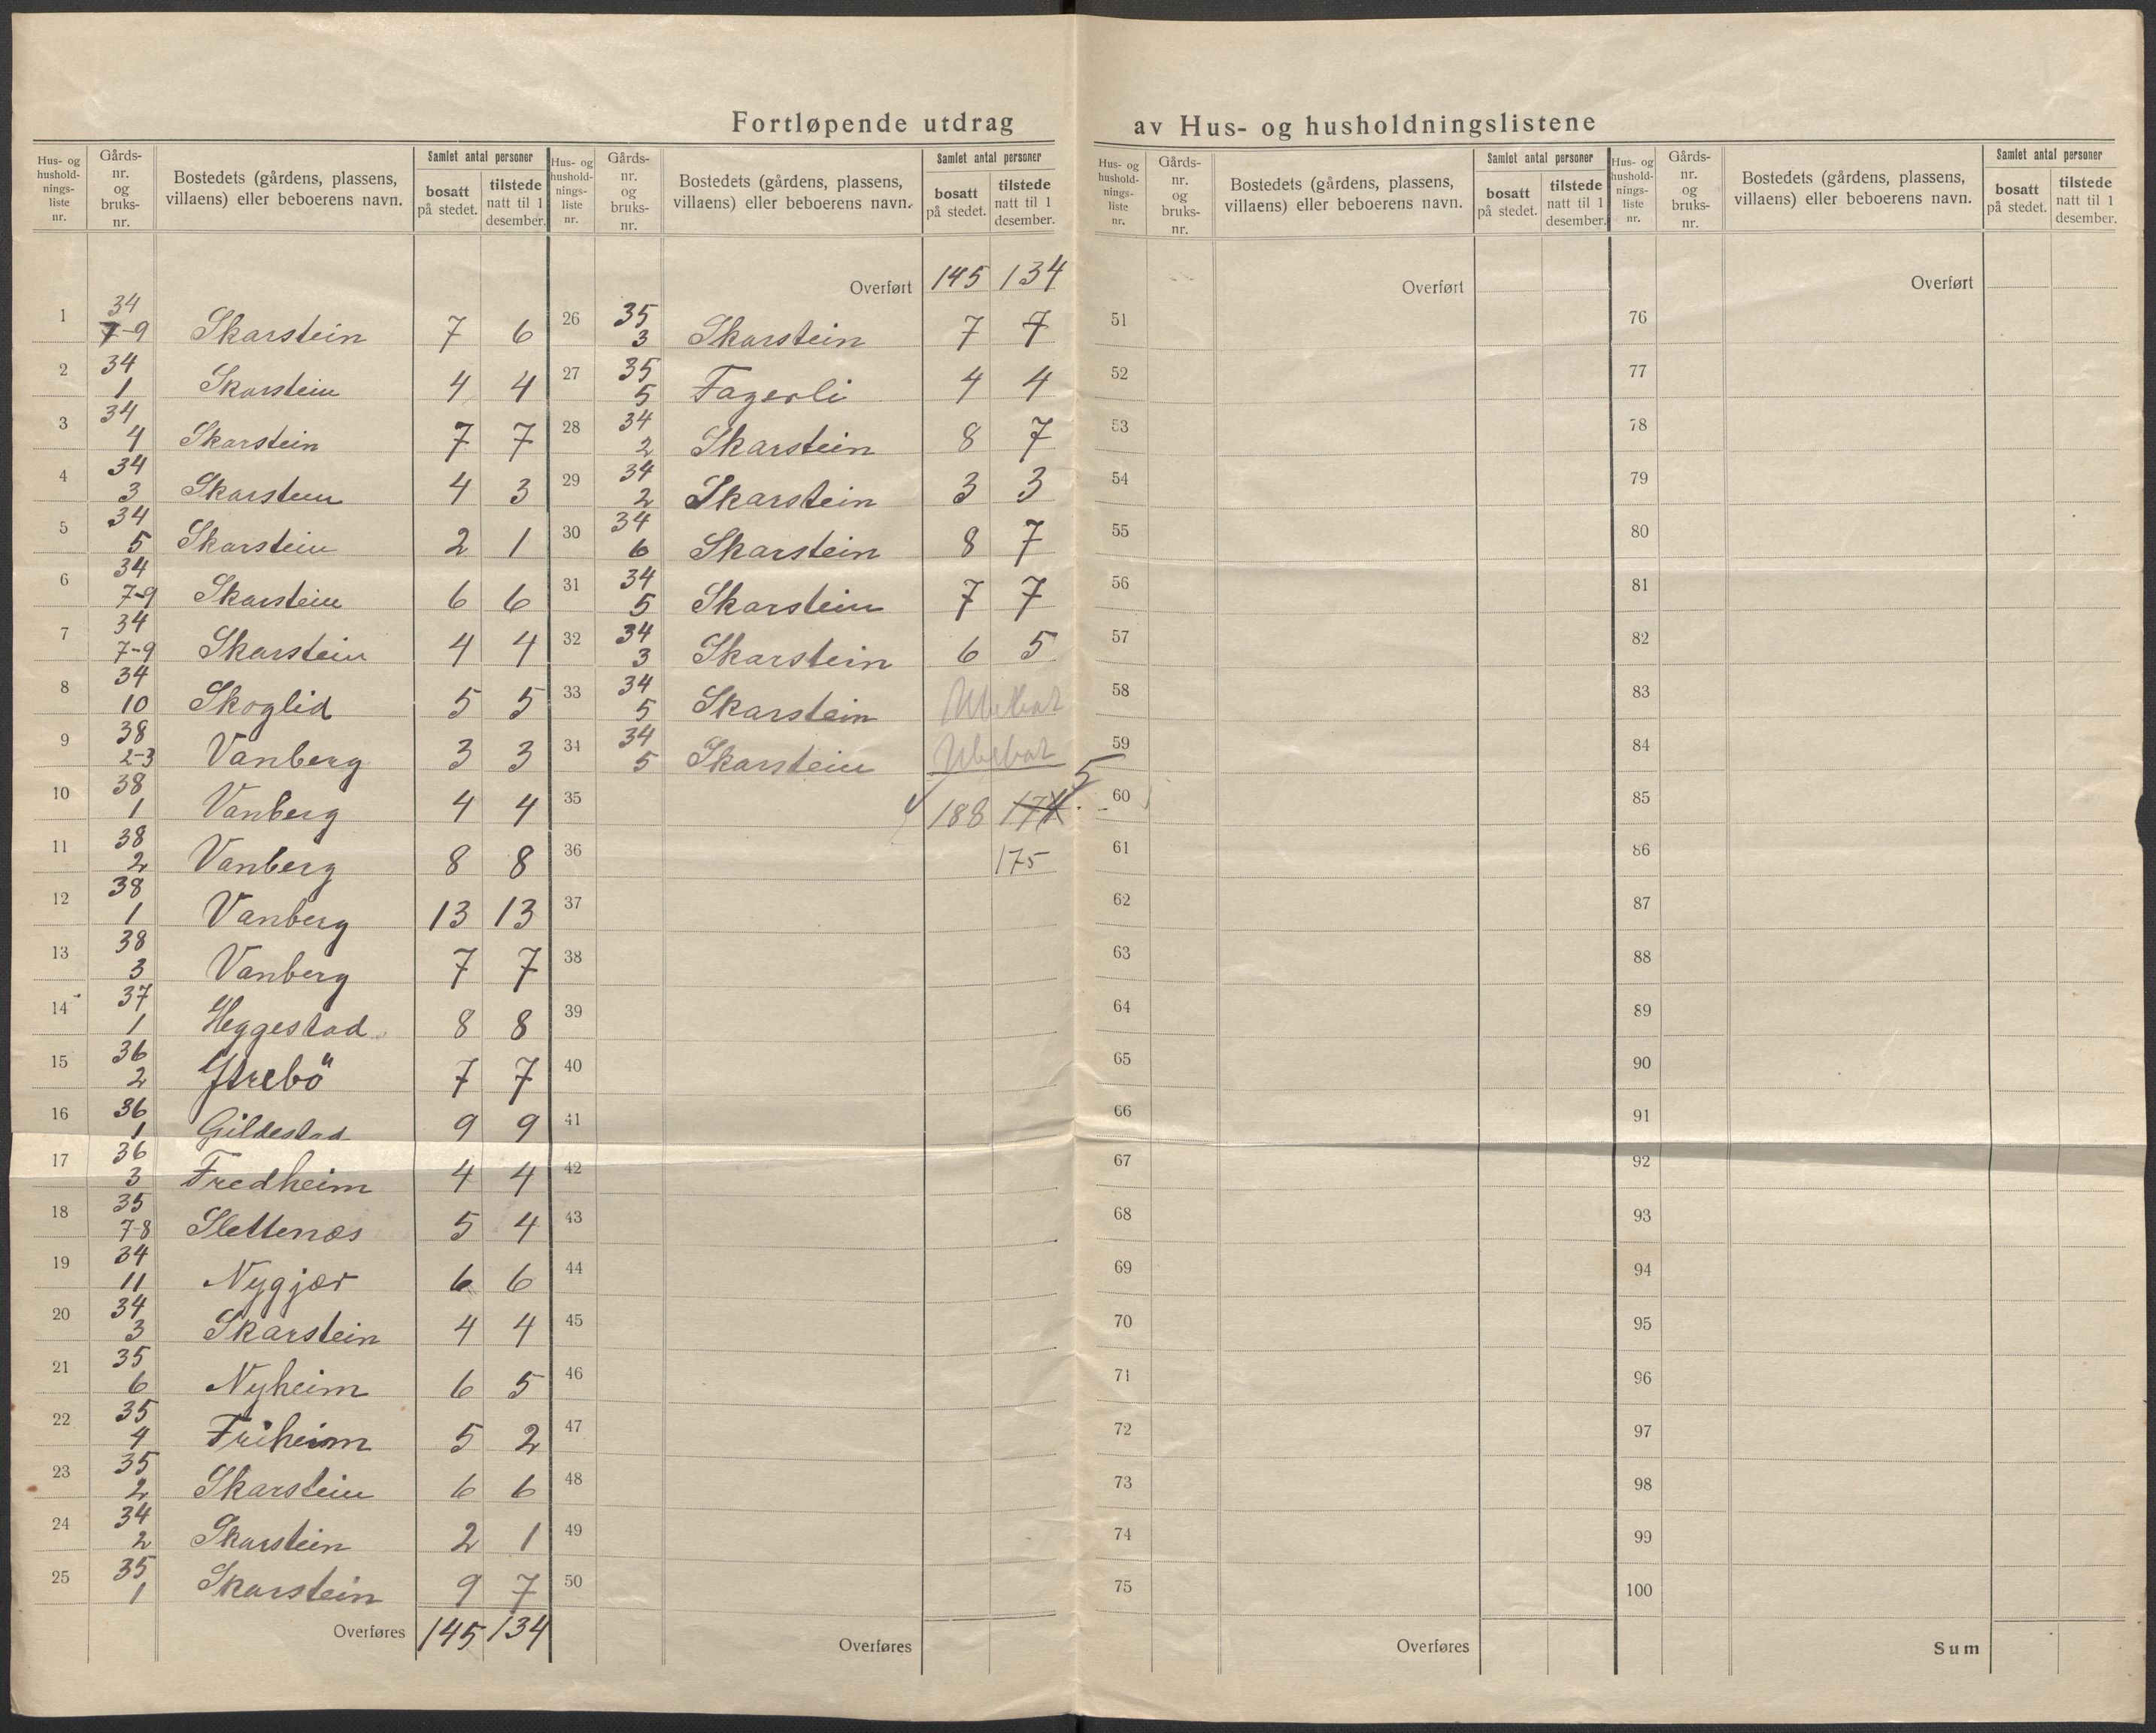 Fortløpende utdrag av Hus- og husholdningslistene
Hus- og hushold-nings-liste nr. Gårds-nr. og bruks-nr. Bostedets (gårdens, plassens, villaens) eller beboerens navn. Samlet antal personer bosatt på stedet. tilstede natt til 1 desember.
1 34 7-9 Skarstein 7 6
2 34 1 Skarstein 4 4
3 34 4 Skarstein 7 7
4 34 3 Skarstein 4 3
5 34 5 Skarstein 2 1
6 34 7-9 Skarstein 6 6
7 34 7-9 Skarstein 4 4
8 34 10 Skoglid 5 5
9 38 2-3 Vanberg 3 3
10 38 1 Vanberg 4 4
11 38 2 Vanberg 8 8
12 38 1 Vanberg 13 13
13 38 3 Vanberg 7 7
14 37 1 Heggestad 8 8
15 36 2 7 7
16 36 1 Gildestad 9 9
17 36 3 Fredheim 4 4
18 35 7-8 Slettenæs 5 4
19 34 11 Nygjær 6 6
20 34 3 Skarstein 4 4
21 35 6 Nyheim 6 5
22 35 4 Friheim 5 2
23 35 2 Skarstein 6 6
24 34 2 Skarstein 2 1
25 35 1 Skarstein 9 7
Overføres 145 134
Hus- og hushold-nings-liste nr. Gårds-nr. og bruks-nr. Bostedets (gårdens, plassens, villaens) eller beboerens navn. Samlet antal personer bosatt på stedet. tilstede natt til 1 desember.
Overført 145 134
26 35 3 Skarstein 7 7
27 35 5 Fagerli 4 4
28 34 2 Skarstein 8 7
29 34 2 Skarstein 3 3
30 34 6 Skarstein 8 7
31 34 5 Skarstein 7 7
32 34 3 Skarstein 6 5
33 34 5 Skarstein Ubebot
34 34 5 Skarstein Ubebot
5
35 188 174
36 175
37
38
39
40
41
42
43
44
45
46
47
48
49
50
Overføres
Hus- og hushold-nings-liste nr. Gårds-nr. og bruks-nr. Bostedets (gårdens, plassens, villaens) eller beboerens navn. Samlet antal personer bosatt på stedet. tilstede natt til 1 desember.
Overført
51
52
53
54
55
56
57
58
59
60
61
62
63
64
65
66
67
68
69
70
71
72
73
74
75
Overføres
Hus- og hushold-nings-liste nr. Gårds-nr. og bruks-nr. Bostedets (gårdens, plassens, villaens) eller beboerens navn. Samlet antal personer bosatt på stedet. tilstede natt til 1 desember.
Overført
76
77
78
79
80
81
82
83
84
85
86
87
88
89
90
91
92
93
94
95
96
97
98
99
100
Sum